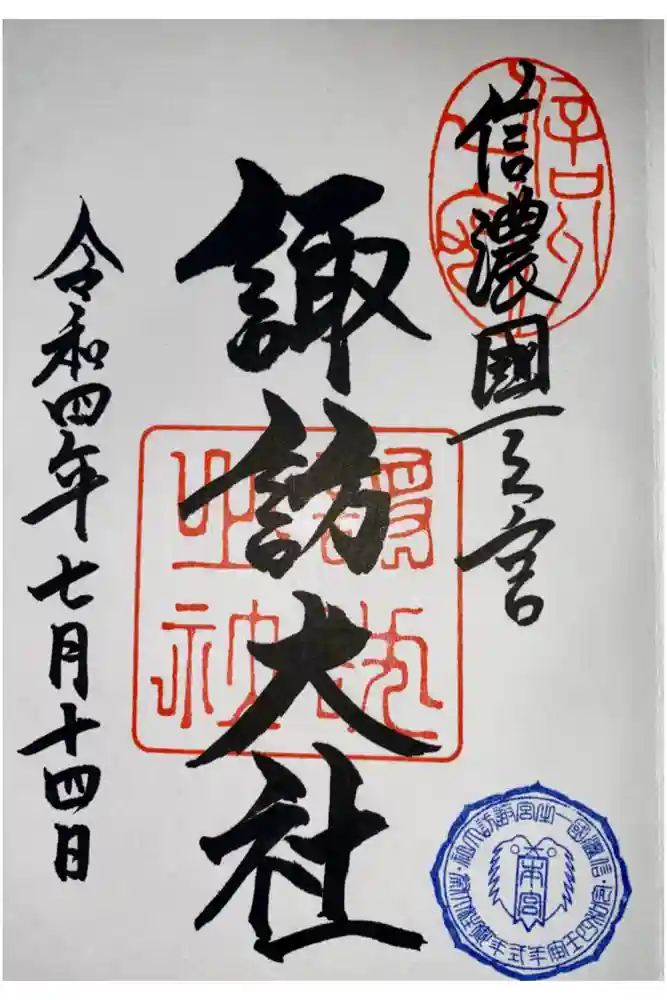 信濃國一之宮
諏訪大社
令和四年七月十四日
信濃國一之宮諏訪大社
本宮